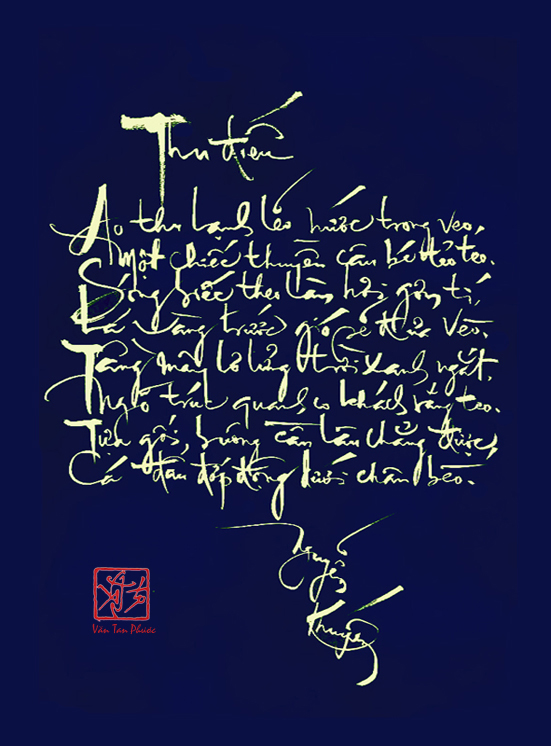 Thu điếu
Ao thu lạnh lẽo nước trong veo,
Một chiếc thuyền câu bé tẻo teo.
Sóng biếc theo làn hơi gợn tí,
Lá vàng trước gió sẽ đưa vèo.
Tầng mây lơ lửng trời xanh ngắt,
Ngõ trúc quanh co khách vắng teo.
Tựa gối, buông cần lâu chẳng được,
Cá đâu đớp động dưới chân bèo.
Nguyễn
Khuyến
Văn Tấn Phước